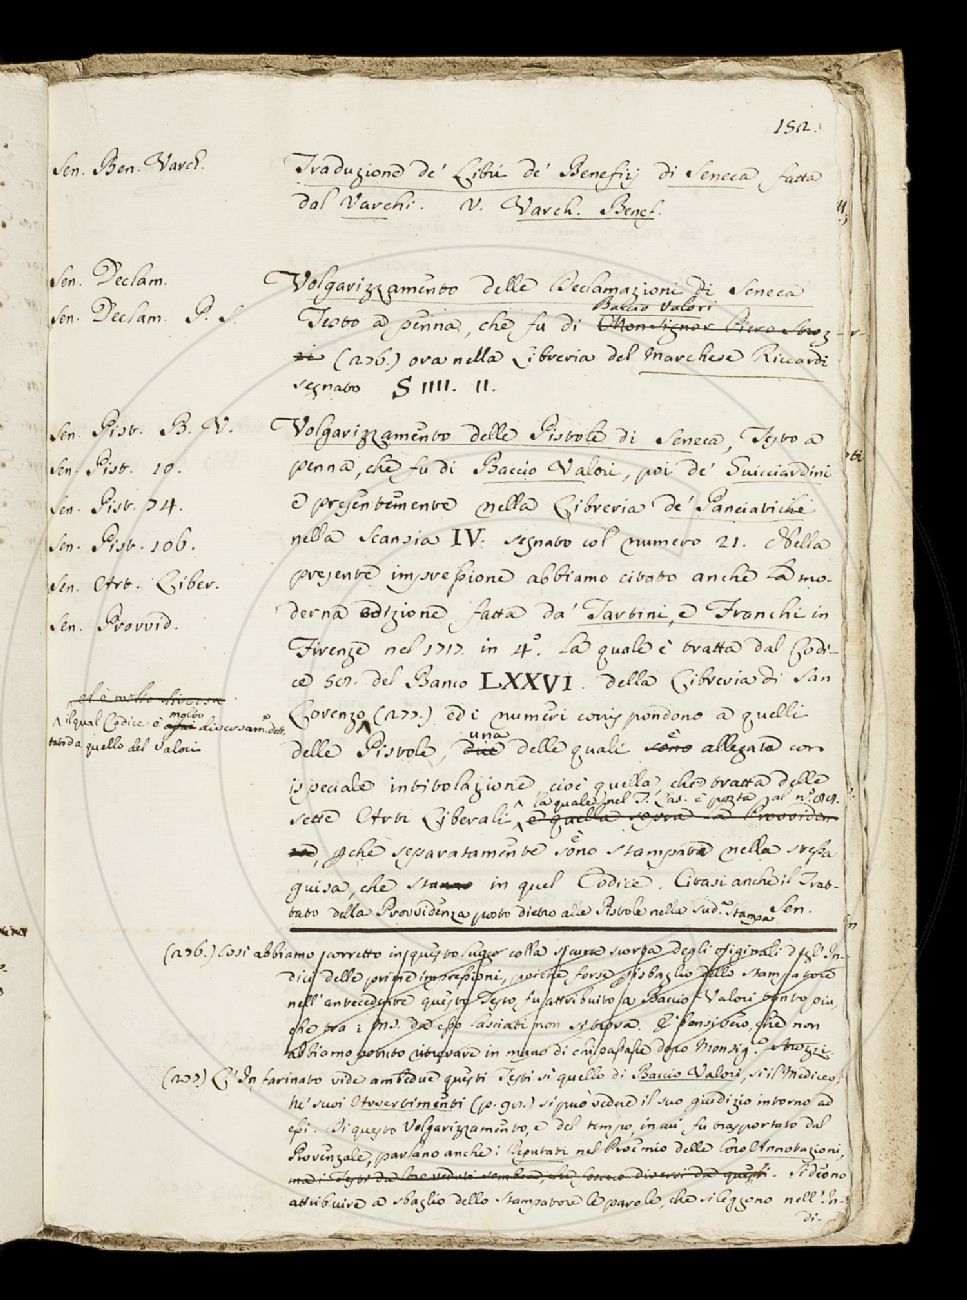 152.
Sen. Ben. Varch. Traduzione de' Libri de' Benefizj di Seneca fatta
dal Varchi. V. Varch. Benef.
Sen. Declam. Volgarizzamento delle Declamazioni di Seneca
Baccio Valori
Sen. Declam. P. S. Testo a penna, che fu di Monsignor Piero Stroz
zi (276.) ora nella Libreria del Marchese Riccardi
segnato S IIII. II.
Sen. Pist. B. V. Volgarizzamento delle Pistole di Seneca, Testo a
Sen. Pist. 10. penna, che fu di Baccio Valori, poi de' Guicciardini
Sen. Pist. 74. e presentemente nella Libreria de' Panciatichi
Sen. Pist. 106. nella Scansia IV: segnato col numero 21. Nella
Sen. Art. Liber. presente impressione abbiamo citato anche la mo-
Sen. Provvid. derna edizione fatta da' Tartini, e Franchi in
Firenze nel 1717. in 4°. la quale è tratta dal Codi-
ce 57. del Banco LXXVI. della Libreria di San
Lorenzo (277.) ed i numeri corrispondono a quelli
ed è molto diversa
il qual Codice è molto diversam. det-
tato da quello del Valori
delle Pistole, due una delle quali sono è allegata con
ispeciale intitolazione cioè quella, che tratta delle
la quale nel T. Las. è posta al n.° 84.
sette Arti Liberali, e quella sopra la Provviden
za, che separatamente sono è stampata nella stessa
guisa, che stanno in quel Codice. Citasi anche il Trat-
tato della Provvidenza posto dietro alle Pistole nella sud.ª stampa Sen.
(276.) Così abbiamo corretto in questo luogo colla sicura scorta degli originali dell' In-
dice delle prime impressioni, poichè forse p isbaglio dello Stampatore
nell' antecedente questo Testo, fu attribuito a Baccio Valori tanto più,
che tra i MS. da esso lasciati non si trova. È possibile, che non
abbiamo potuto ritrovare in mano di chi passasse dopo Monsig.r Strozzi.
(277.) L' Infarinato vide ambedue questi Testi sì quello di Baccio Valori, sì il Mediceo,
ne' suoi Avvertimenti si può vedere il suo giudizio intorno ad
essi. Di questo Volgarizzamento, e del tempo, in cui fu trasportato dal
Provenzale, parlano anche i Deputati nel Proemio delle loro Annotazioni,
ma i Testi da loro veduti sembra, che fossero diversi da questi. Si deono
attribuire a sbaglio dello Stampatore le parole, che si leggono nell' In-
di-